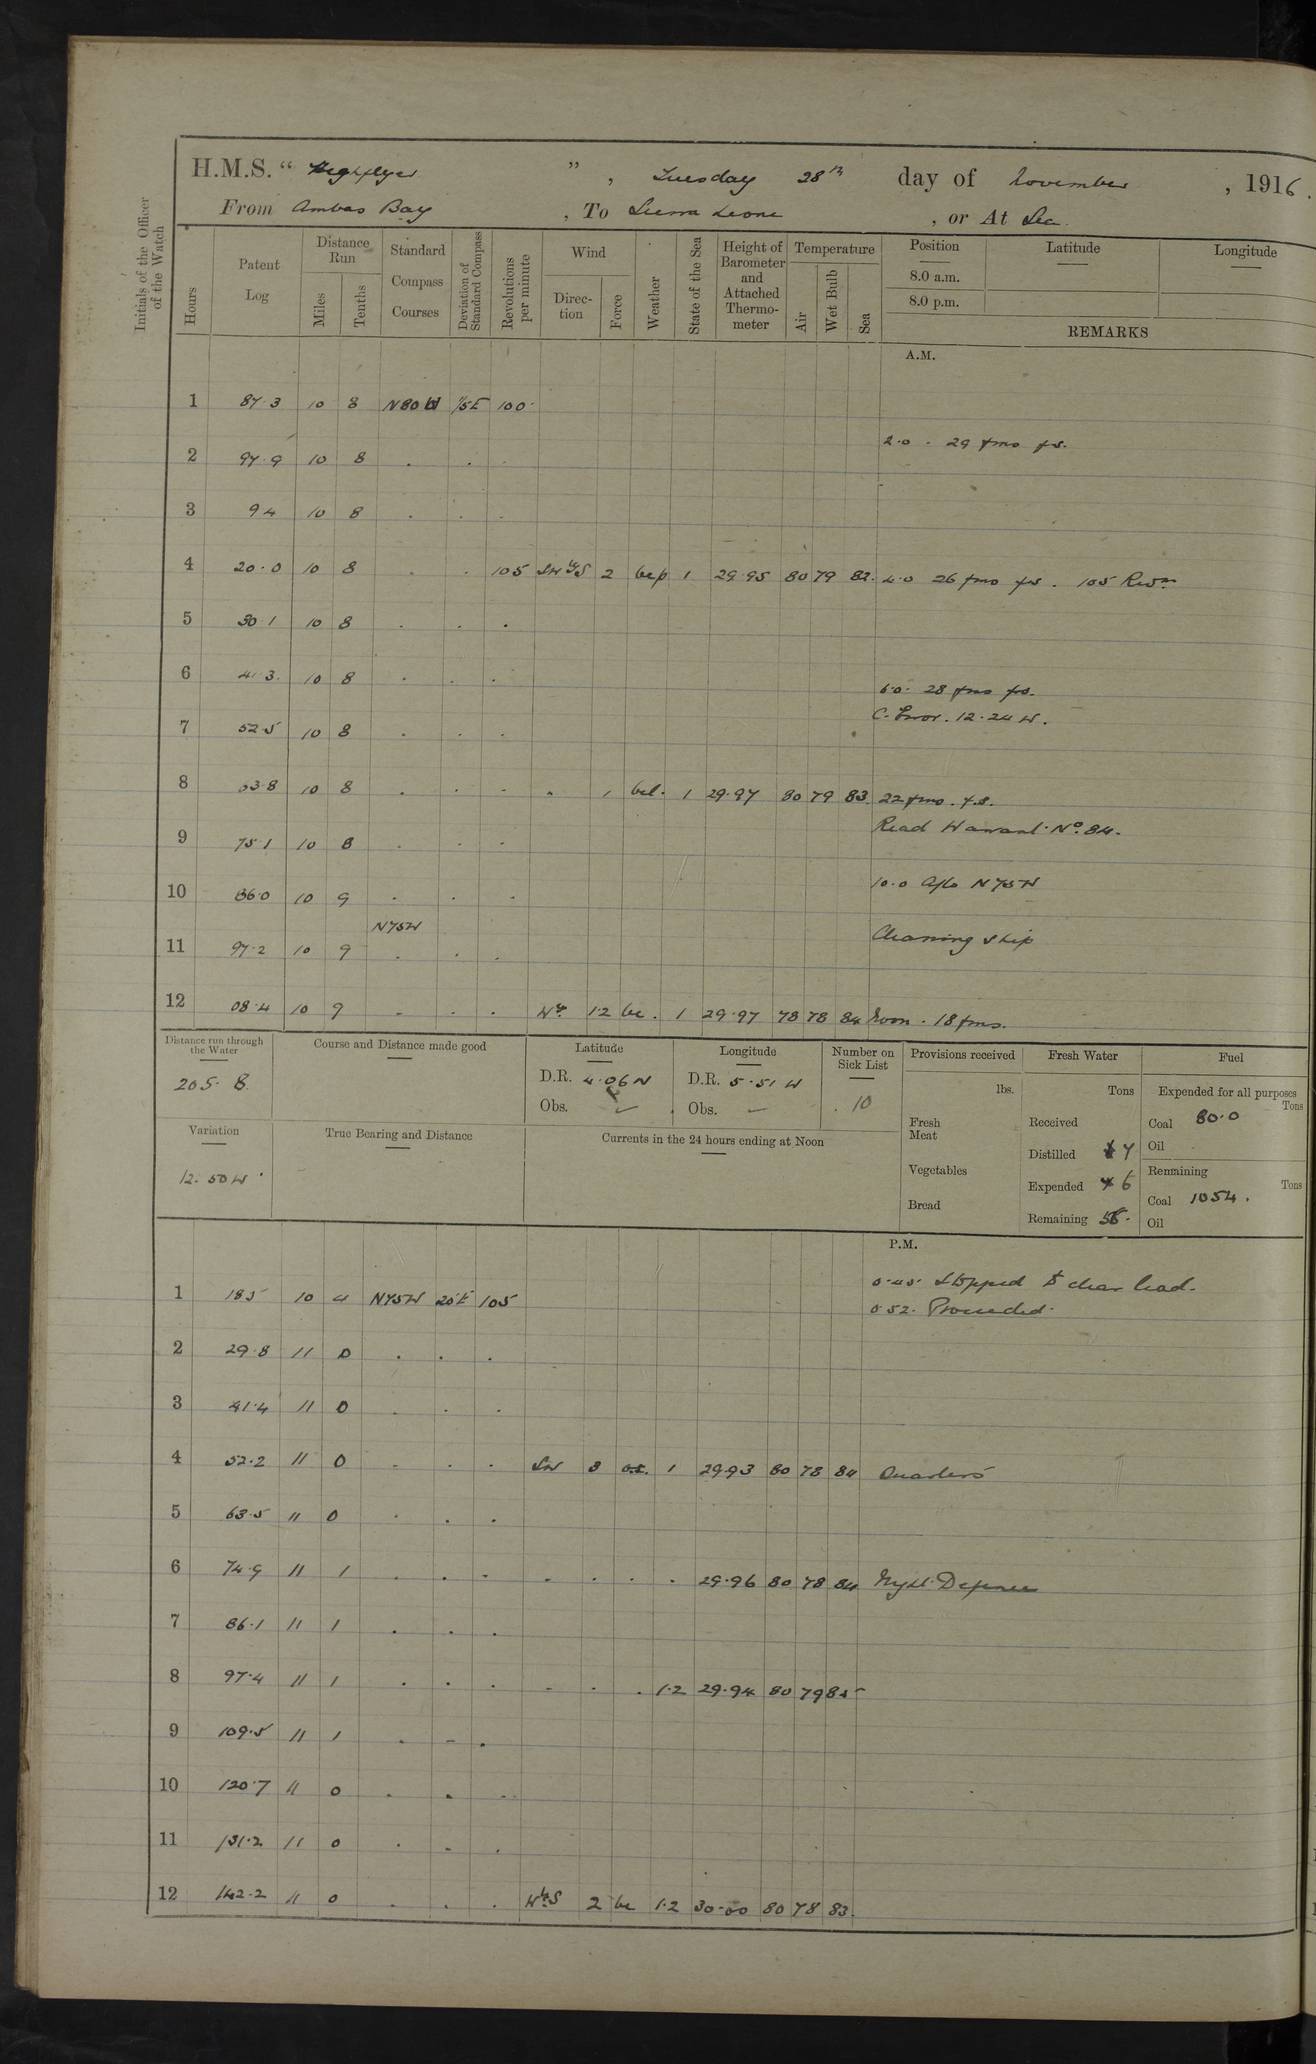 H.M.S. “ Highflyer ” , Tuesday 28th day of November , 1916.
From Ambas Bay , To Sierra Leone , or At Sea.
Initials of the Officer of the Watch
Hours
Patent Log
Distance Run
Miles
Tenths
Standard Compass Courses
Deviation of Standard Compass
Revolutions per minute
Wind
Direc-tion
Force
Weather
State of the Sea
Height of Barometer and Attached Thermo-meter
Temperature
Air
Wet Bulb
Sea
Position
Latitude
Longitude
8.0 a.m.
8.0 p.m.
REMARKS
A.M.
1 87.3 10 8 N80W 100
2.0 . 29 fms
2 97.9 10 8 . . .
3 9.4 10 8 . . .
4 20.0 10 8 . . 105 SW by S 2 bcp 1 29.95 80 79 82. 4.0 26 fms . 105 Revs.
5 30.1 10 8 . . .
6 41.3 10 8 . . .
6.0. 28 fms
C. Error. 12.24 W.
7 52.5 10 8 . . .
8 63.8 10 8 . . . . 1 bcl. 1 29.97 80 79 83. 22 fms.
Read Warrant No. 84.
9 75.1 10 8 . . .
10.0 a/co N75W
10 86.0 10 9 . . .
N75W
Cleaning ship
11 97.2 10 9 . . .
12 08.4 10 9 . . . Wly 1.2 bc. 1 29.97 78 78 84 Noon . 18 fms.
Distance run through the Water
205.8
Course and Distance made good
Latitude
D.R. 4.06 N
Obs.
Longitude
D.R. 5.51 W
Obs.
Number on Sick List
10
Provisions received
lbs.
Fresh Meat
Vegetables
Bread
Fresh Water
Tons
Received
Distilled 7
Expended 6
Remaining 56.
Fuel
Expended for all purposes
Tons
Coal 80.0
Oil
Remaining
Tons
Coal 1054.
Oil
Variation
12.50 W
True Bearing and Distance
Currents in the 24 hours ending at Noon
P.M.
0.45. Stopped to clear lead.
1 18.5 10 4 N75W 105
0.52. Proceeded.
2 29.8 11 0 . . .
3 41.4 11 0 . . .
4 52.2 11 0 . . . SW 3 1 29.93 80 78 84 Quarters
5 63.5 11 0 . . .
6 74.9 11 1 . . . . . . . 29.96 80 78 84 Night Defence
7 86.1 11 1 . . .
8 97.4 11 1 . . . . . . 1.2 29.94 80 79 85
9 109.5 11 1 . . .
10 120.7 11 0 . . .
11 131.2 11 0 . . .
12 142.2 11 0 . . . W by S 2 bc 1.2 30.00 80 78 83.